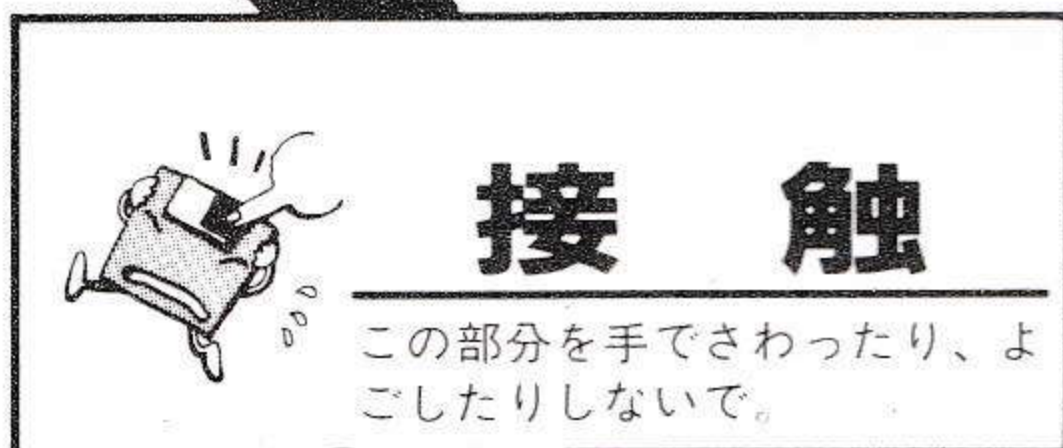 接触
この部分を手でさわったり、よ
ごしたりしないで。